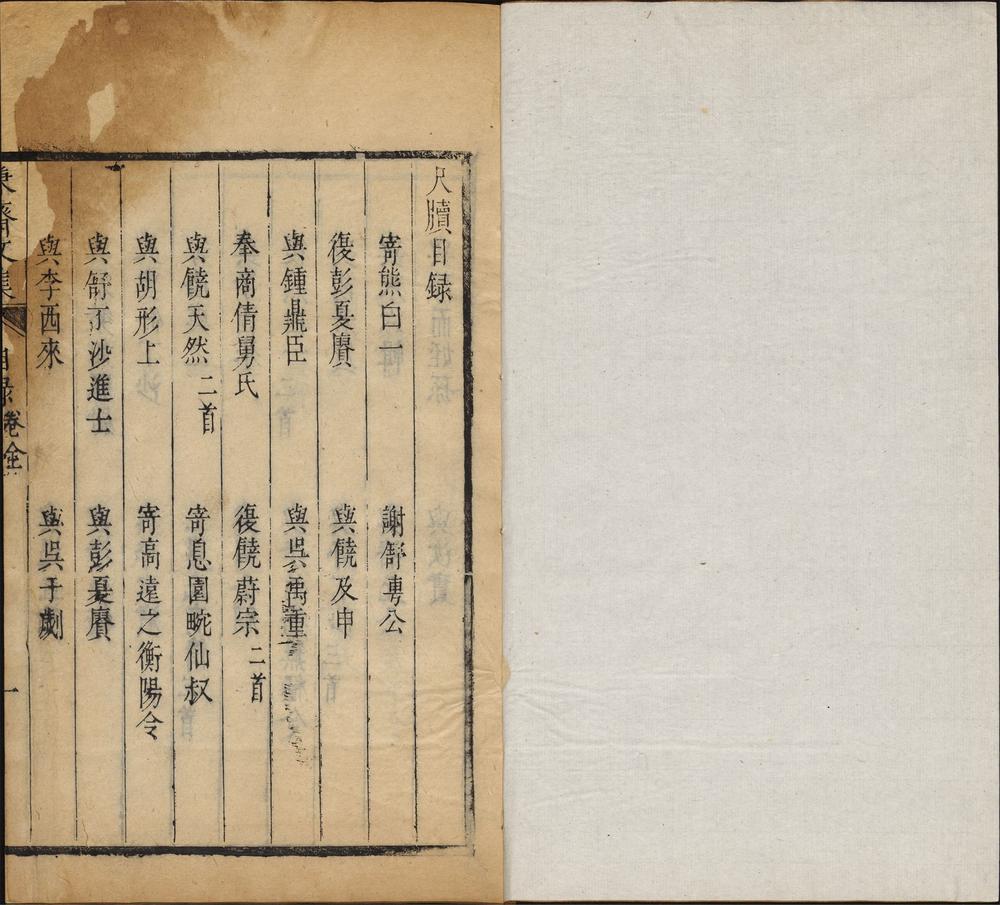 尺牘目录
寄熊白一　謝舒尃公
復彭夏賡　與饒及申
與鍾鼎臣　與吳禹重
奉商倩舅氏　復饒蔚宗二首
與饒天然二首　寄息園畹仙叔
與胡形上　寄高遠之衡陽令
與舒丁沙進士　與彭夏賡
與李西來　與吳于劇
齋文集　目录　卷全　一